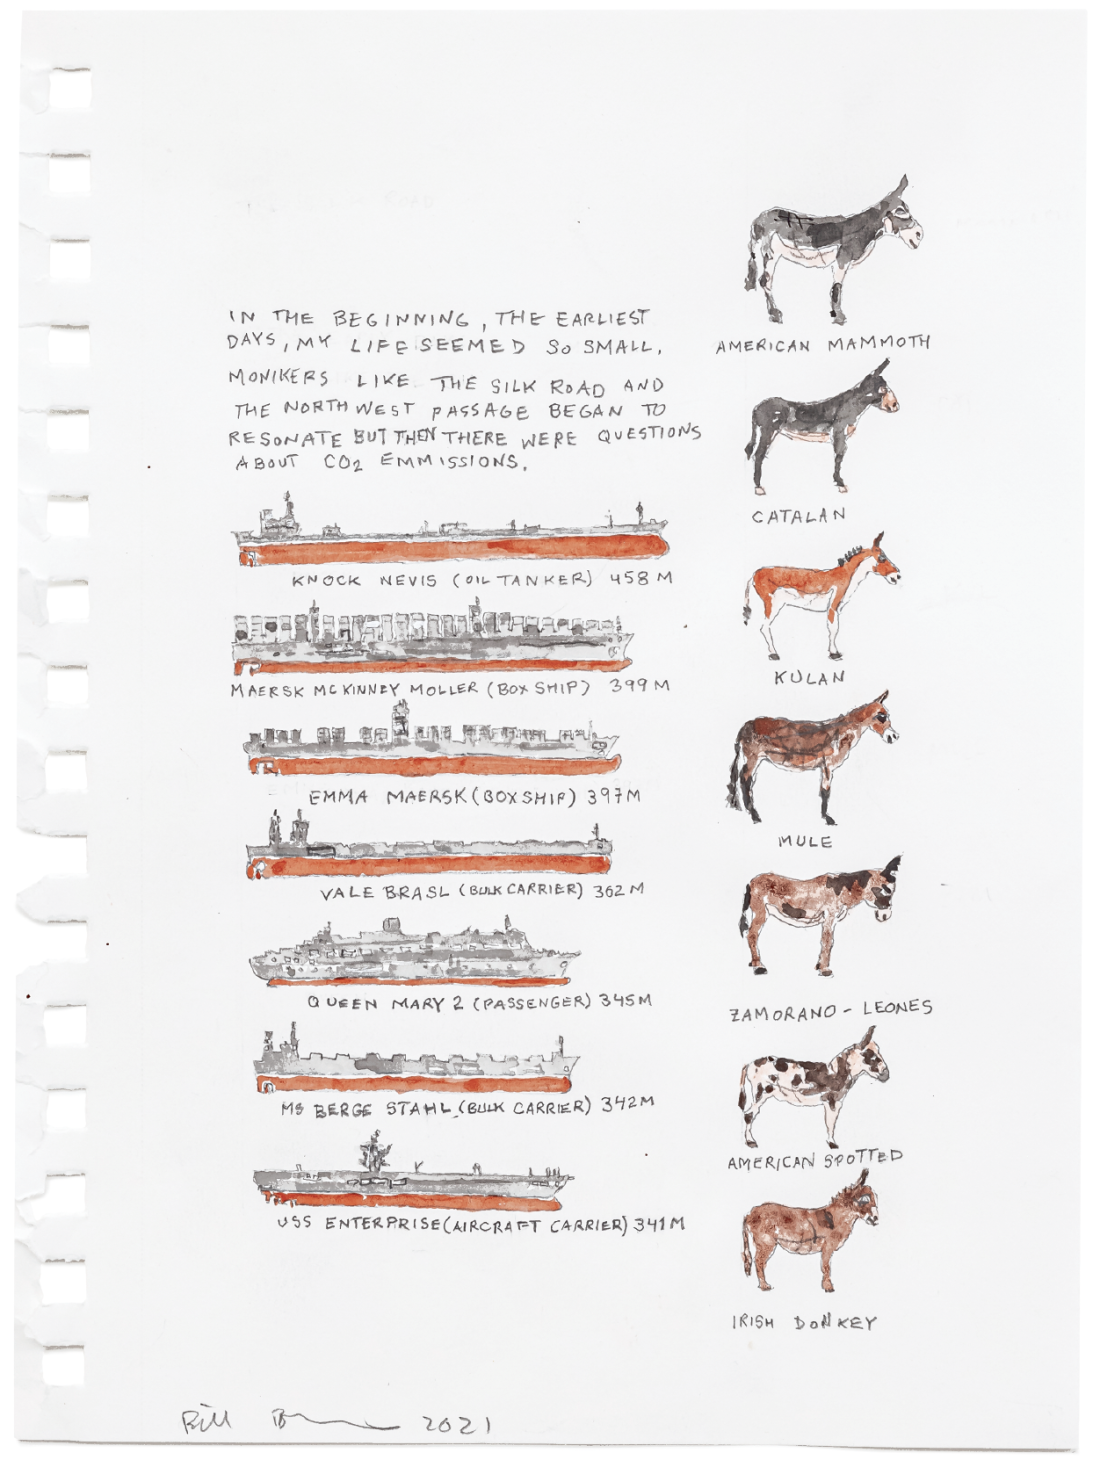 IN THE BEGINNING, THE EARLIEST
DAYS, MY LIFE SEEMED SO SMALL.
MONIKERS LIKE THE SILK ROAD AND
THE NORTHWEST PASSAGE BEGAN TO
RESONATE BUT THEN THERE WERE QUESTIONS
ABOUT CO2 EMMISSIONS.
KNOCK NEVIS (OIL TANKER) 458 M
MAERSK MCKINNEY MOLLER (BOX SHIP) 399 M
EMMA MAERSK (BOXSHIP) 397M
VALE BRASL (BULK CARRIER) 362 M
QUEEN MARY 2 (PASSENGER) 345M
MS BERGE STAHL (BULK CARRIER) 342M
USS ENTERPRISE (AIRCRAFT CARRIER) 341M
AMERICAN MAMMOTH
CATALAN
KULAN
MULE
ZAMORANO - LEONES
AMERICAN SPOTTED
IRISH DONKEY
Bill 2021